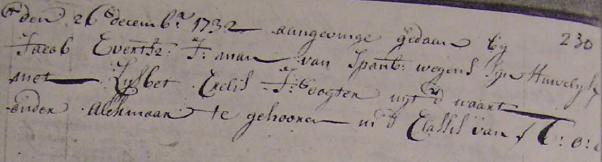 den 26 decemb.r 1732 aangevinge gedaan by 230
Jacob Evertsz J: man van Spanb: wegens syn Huwelyk
met Lysbet Crelis J: dogter uyt d waart
onder Alckmaar te gehooren in d Classis van